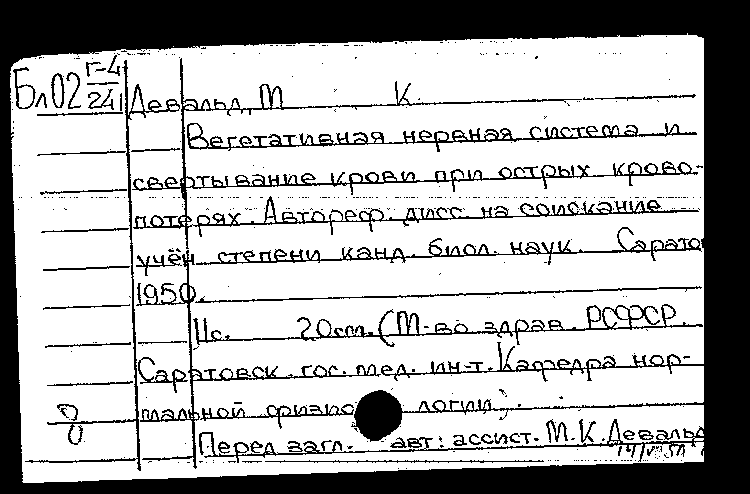 Бл02 Г-4/241
Девальд, М К.
Вегетативная нервная система и
свертывание крови при острых крово-
потерях. Автореф. дисс. на соискание
учён. степени канд. биол. наук. Сарато
1950.
11с. 20cm. (М-во здрав. РСФСР.
Саратовск. гос. мед. ин-т. Кафедра нор-
мальной физио логии).
Перед загл. авт: ассист. М.К.Девальд